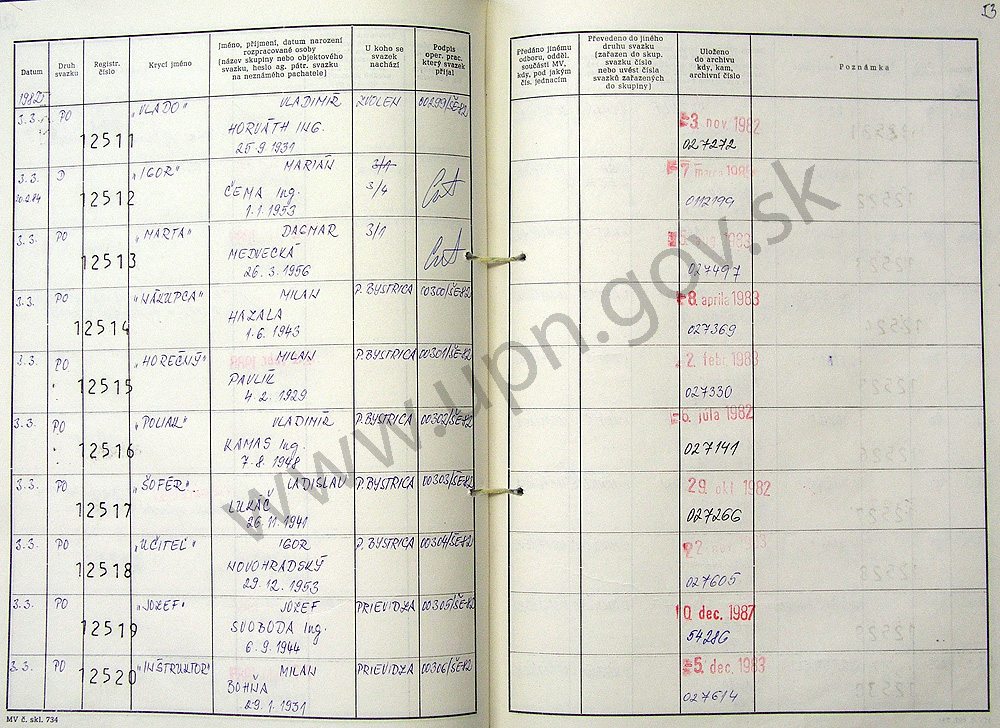 53
Datum
Druh svazku
Registr. číslo
Krycí jméno
Jméno, příjmení, datum narození
rozpracované osoby
(název skupiny nebo objektového
svazku, heslo ag. pátr. svazku
na neznámého pachatele)
U koho se
svazek
nachází
Podpis
oper. prac.
který svazek
přijal
Předáno jinému
odboru, odděl.
součásti MV,
kdy, pod jakým
čís. jednacím
Převedeno do jiného
druhu svazku
(zařazen do skup.
svazku číslo
nebo uvést čísla
svazků zařazených
do skupiny)
Uloženo
do archivu
kdy, kam,
archivní číslo
Poznámka
1982
3.3. PO 12511 "VLADO" VLADIMÍR ZVOLEN 00299/ŠE-82 3. nov 1982
HORVÁTH ING. 027272
25.9.1931
3.3. D 12512 "IGOR" MARIÁN 3/1 7
20.2.84 ČEMA Ing. 3/4 0112199
1.1.1953
3.3. PO 12513 "MARTA" DAGMAR 3/1 1983
MEDVECKÁ 027497
26.3.1956
3.3. PO 12514 "NÁKUPCA" MILAN P. BYSTRICA 00300/ŠE-82 8. apríla 1983
HAZALA 027369
1.6.1943
3.3. PO 12515 "HOREČNÝ" MILAN P. BYSTRICA 00301/ŠE-82 2. febr. 1983
PAVLÍK 027330
4.2.1929
3.3. PO 12516 "POLIAK" VLADIMÍR P. BYSTRICA 00302/ŠE-82 6. júla 1982
KAMAS Ing. 027141
7.8.1948
3.3. PO 12517 "ŠOFÉR" LADISLAV P. BYSTRICA 00303/ŠE-82 29. okt 1982
LUKÁČ 027266
26.11.1941
3.3. PO 12518 "UČITEĽ" IGOR P. BYSTRICA 00304/ŠE-82
NOVOHRADSKÝ 027605
29.12.1953
3.3. PO 12519 "JOZEF" JOZEF PRIEVIDZA 00305/ŠE-82 10. dec. 1987
SVOBODA Ing. 54286
6.9.1944
3.3. PO 12520 "INŠTRUKTOR" MILAN PRIEVIDZA 00306/ŠE-82 5. dec. 1983
BOHŇA 027614
29.1.1931
MV č. skl. 734
www.upn.gov.sk